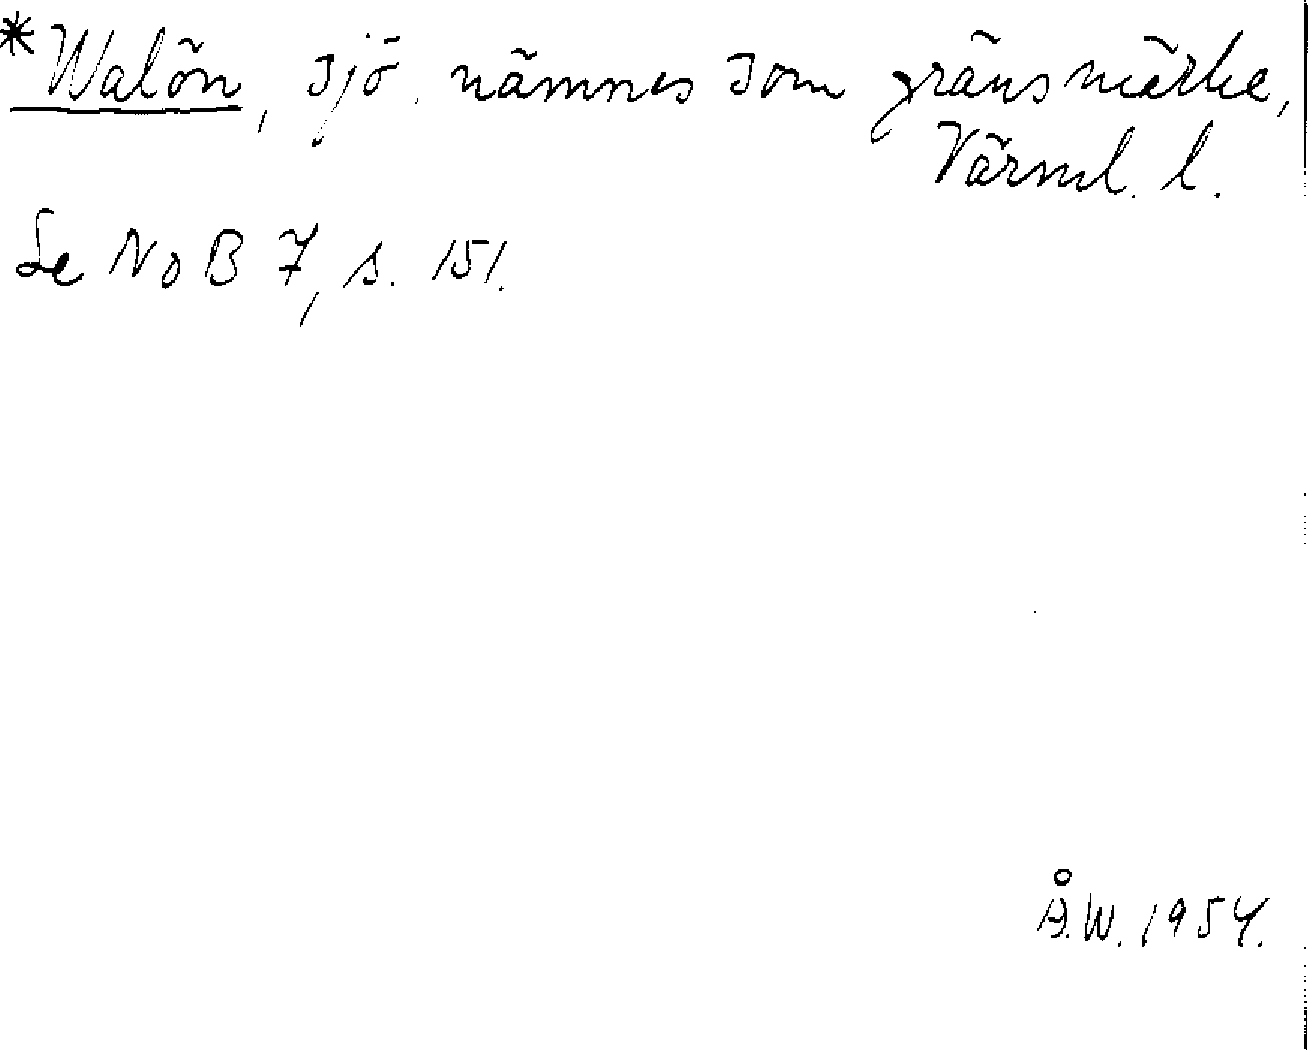 *Walön, sjö, nämnes som gränsmärke,
Värml. l.
Se NoB 7, s. 151.
Å.W. 1954.